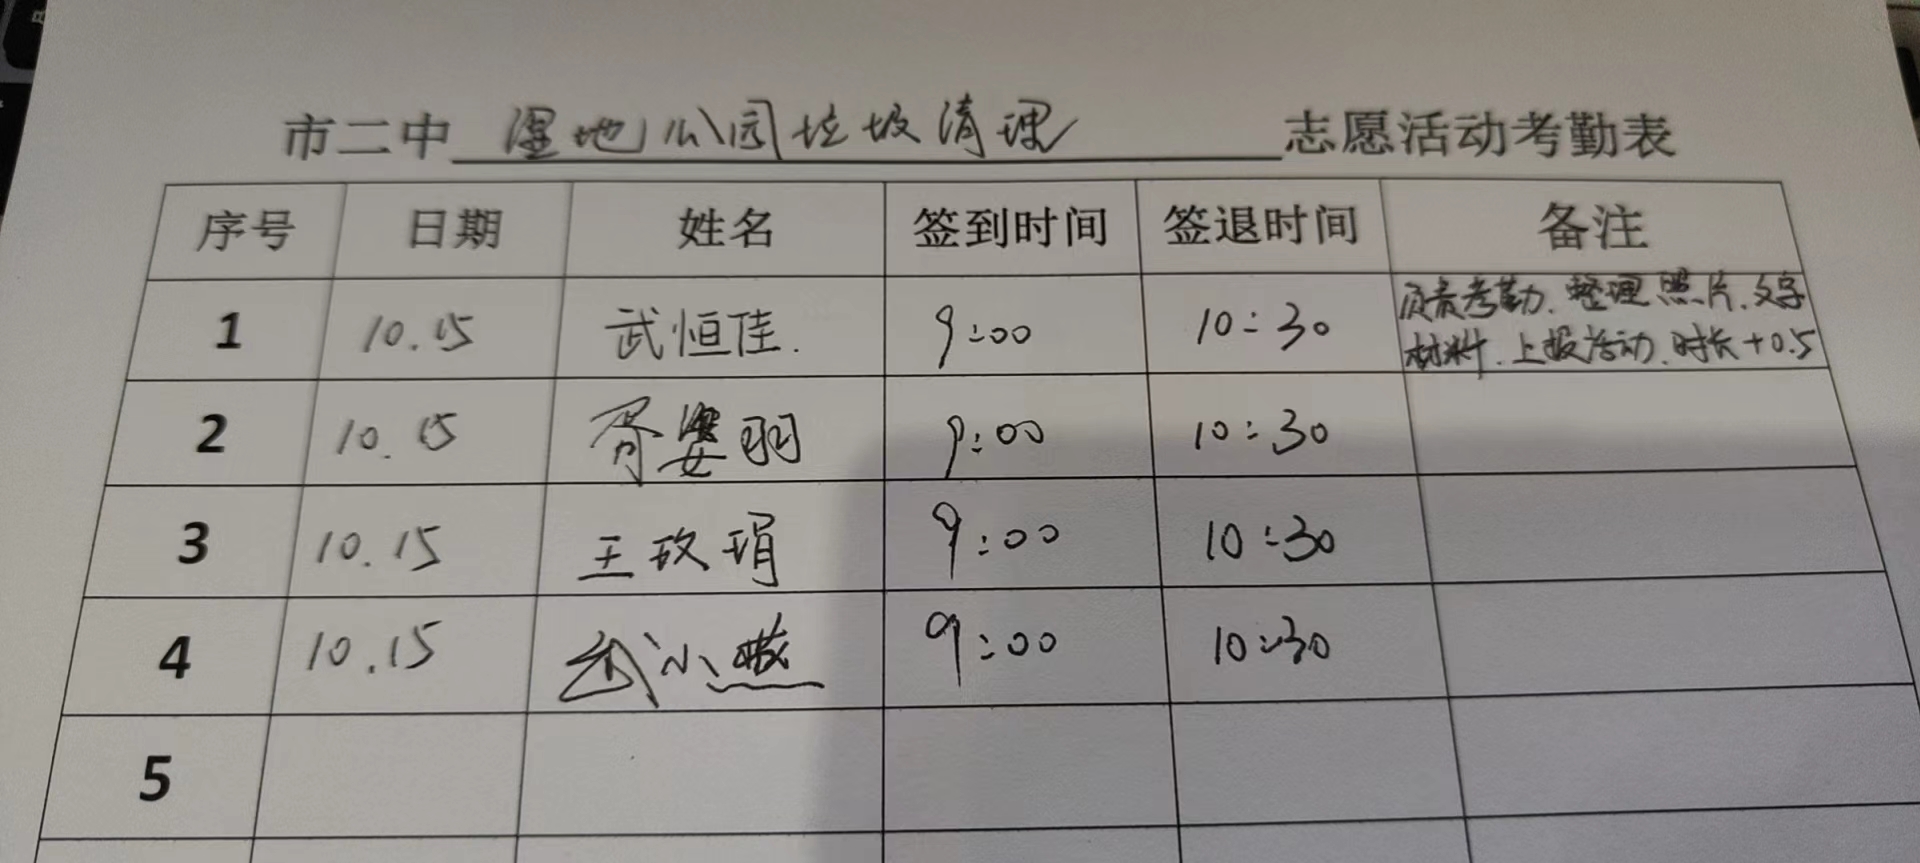 市二中 湿地公园垃圾清理 志愿活动考勤表
序号 日期 姓名 签到时间 签退时间 备注
1 10.15 武恒佳. 9:00 10:30 负责考勤.整理照片.文字
材料.上报活动.时长+0.5
2 10.15 胥婴羽 9:00 10:30
3 10.15 王玫琄 9:00 10:30
4 10.15 武小燕 9:00 10:30
5